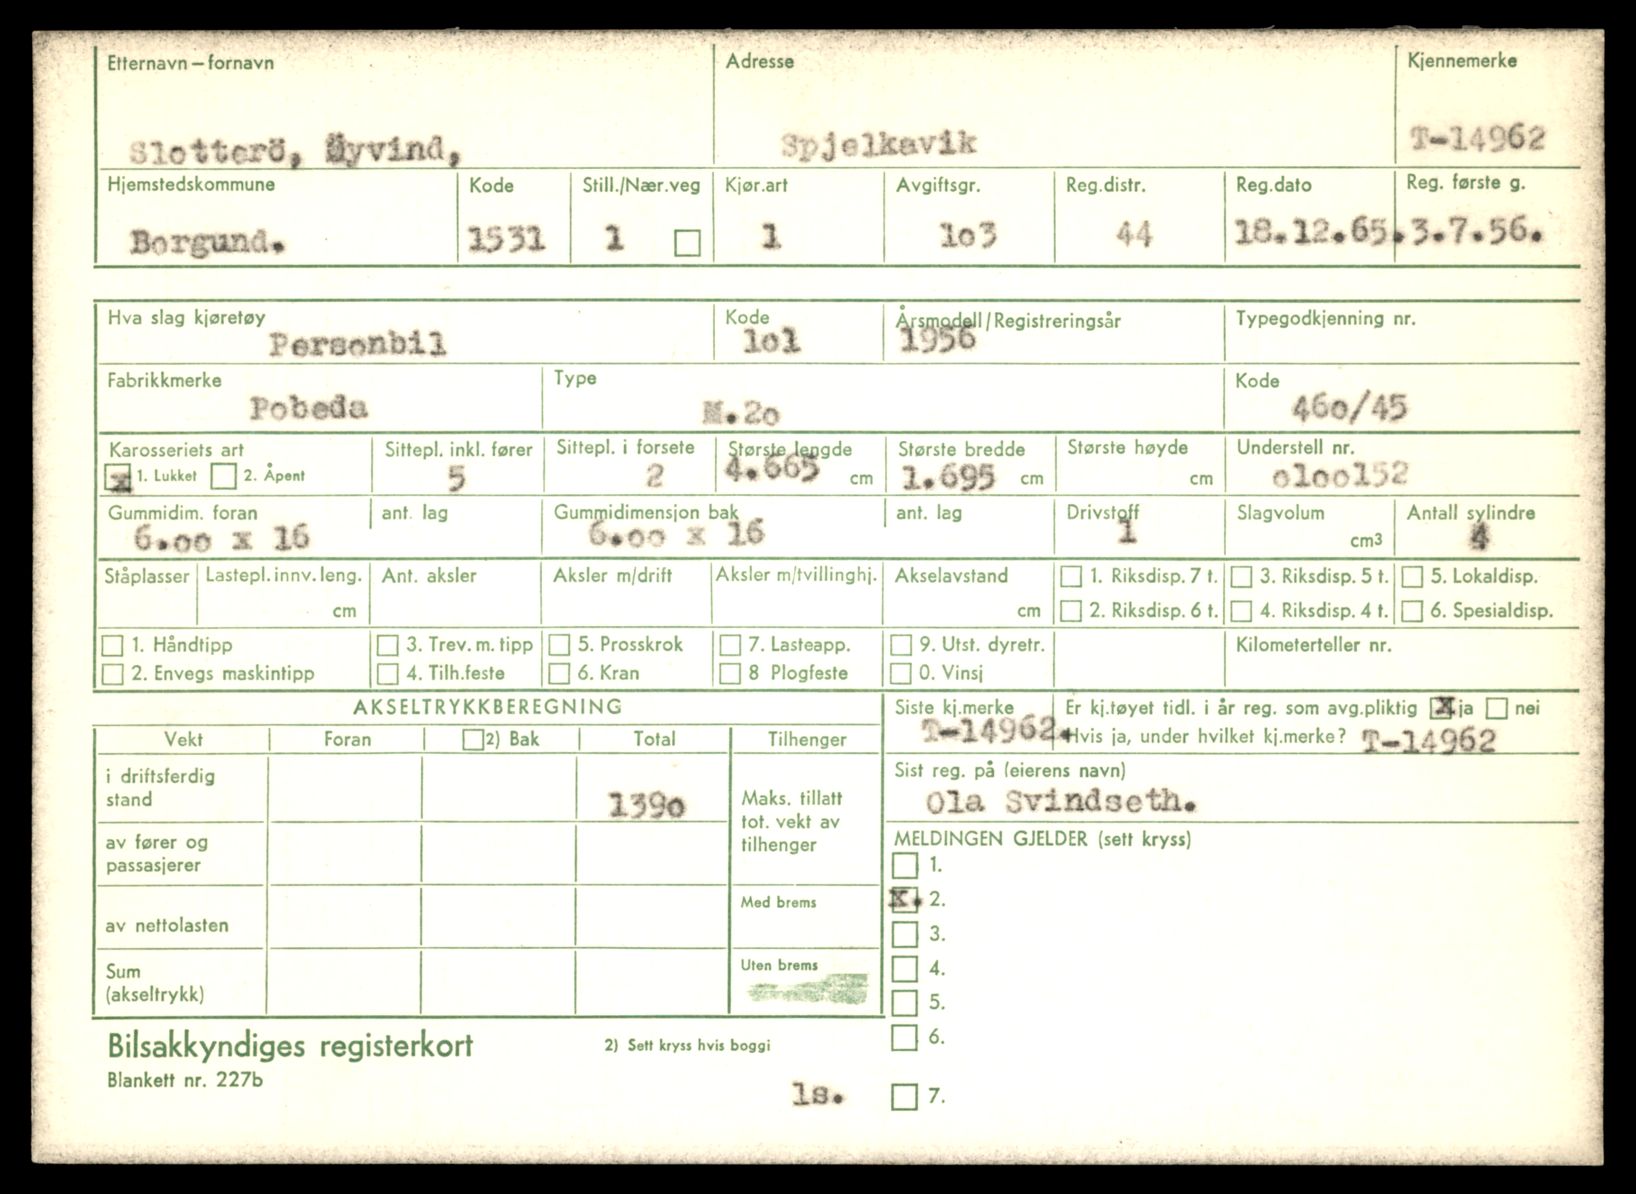 Etternavn – fornavn Adresse Kjennemerke
Slotterö, Øyvind, Spjelkavik T-14962
Hjemstedskommune Kode Still./Nær.veg Kjør.art Avgiftsgr. Reg.distr. Reg.dato Reg. første g.
Borgund. 1531 1 1 1o3 44 18.12.65. 3.7.56.
Hva slag kjøretøy Kode Årsmodell/Registreringsår Typegodkjenning nr.
Personbil 1o1 1956
Fabrikkmerke Type Kode
Pobeda M.2o 46o/45
Karosseriets art Sittepl. inkl. fører Sittepl. i forsete Største lengde Største bredde Største høyde Understell nr.
x 1. Lukket 2. Åpent 5 2 4.665 cm 1.695 cm cm o1oo152
Gummidim. foran ant. lag Gummidimensjon bak ant. lag Drivstoff Slagvolum Antall sylindre
6.oo x 16 6.oo x 16 1 cm3 4
Ståplasser Lastepl.innv.leng. Ant. aksler Aksler m/drift Aksler m/tvillinghj. Akselavstand 1. Riksdisp. 7 t. 3. Riksdisp. 5 t. 5. Lokaldisp.
cm cm 2. Riksdisp. 6 t. 4. Riksdisp. 4 t. 6. Spesialdisp.
1. Håndtipp 3. Trev. m. tipp 5. Prosskrok 7. Lasteapp. 9. Utst. dyretr. Kilometerteller nr.
2. Envegs maskintipp 4. Tilh.feste 6. Kran 8 Plogfeste 0. Vinsj
AKSELTRYKKBEREGNING Siste kj.merke Er kj.tøyet tidl. i år reg. som avg.pliktig x ja nei
T-14962. Hvis ja, under hvilket kj.merke? T-14962
Vekt Foran 2) Bak Total Tilhenger
Sist reg. på (eierens navn)
i driftsferdig
stand 139o Ola Svindseth.
Maks. tillatt
tot. vekt av
tilhenger
av fører og
passasjerer
MELDINGEN GJELDER (sett kryss)
1.
Med brems x. 2.
av nettolasten 3.
Uten brems 4.
Sum
(akseltrykk) 5.
6.
Bilsakkyndiges registerkort 2) Sett kryss hvis boggi
Blankett nr. 227b
ls. 7.